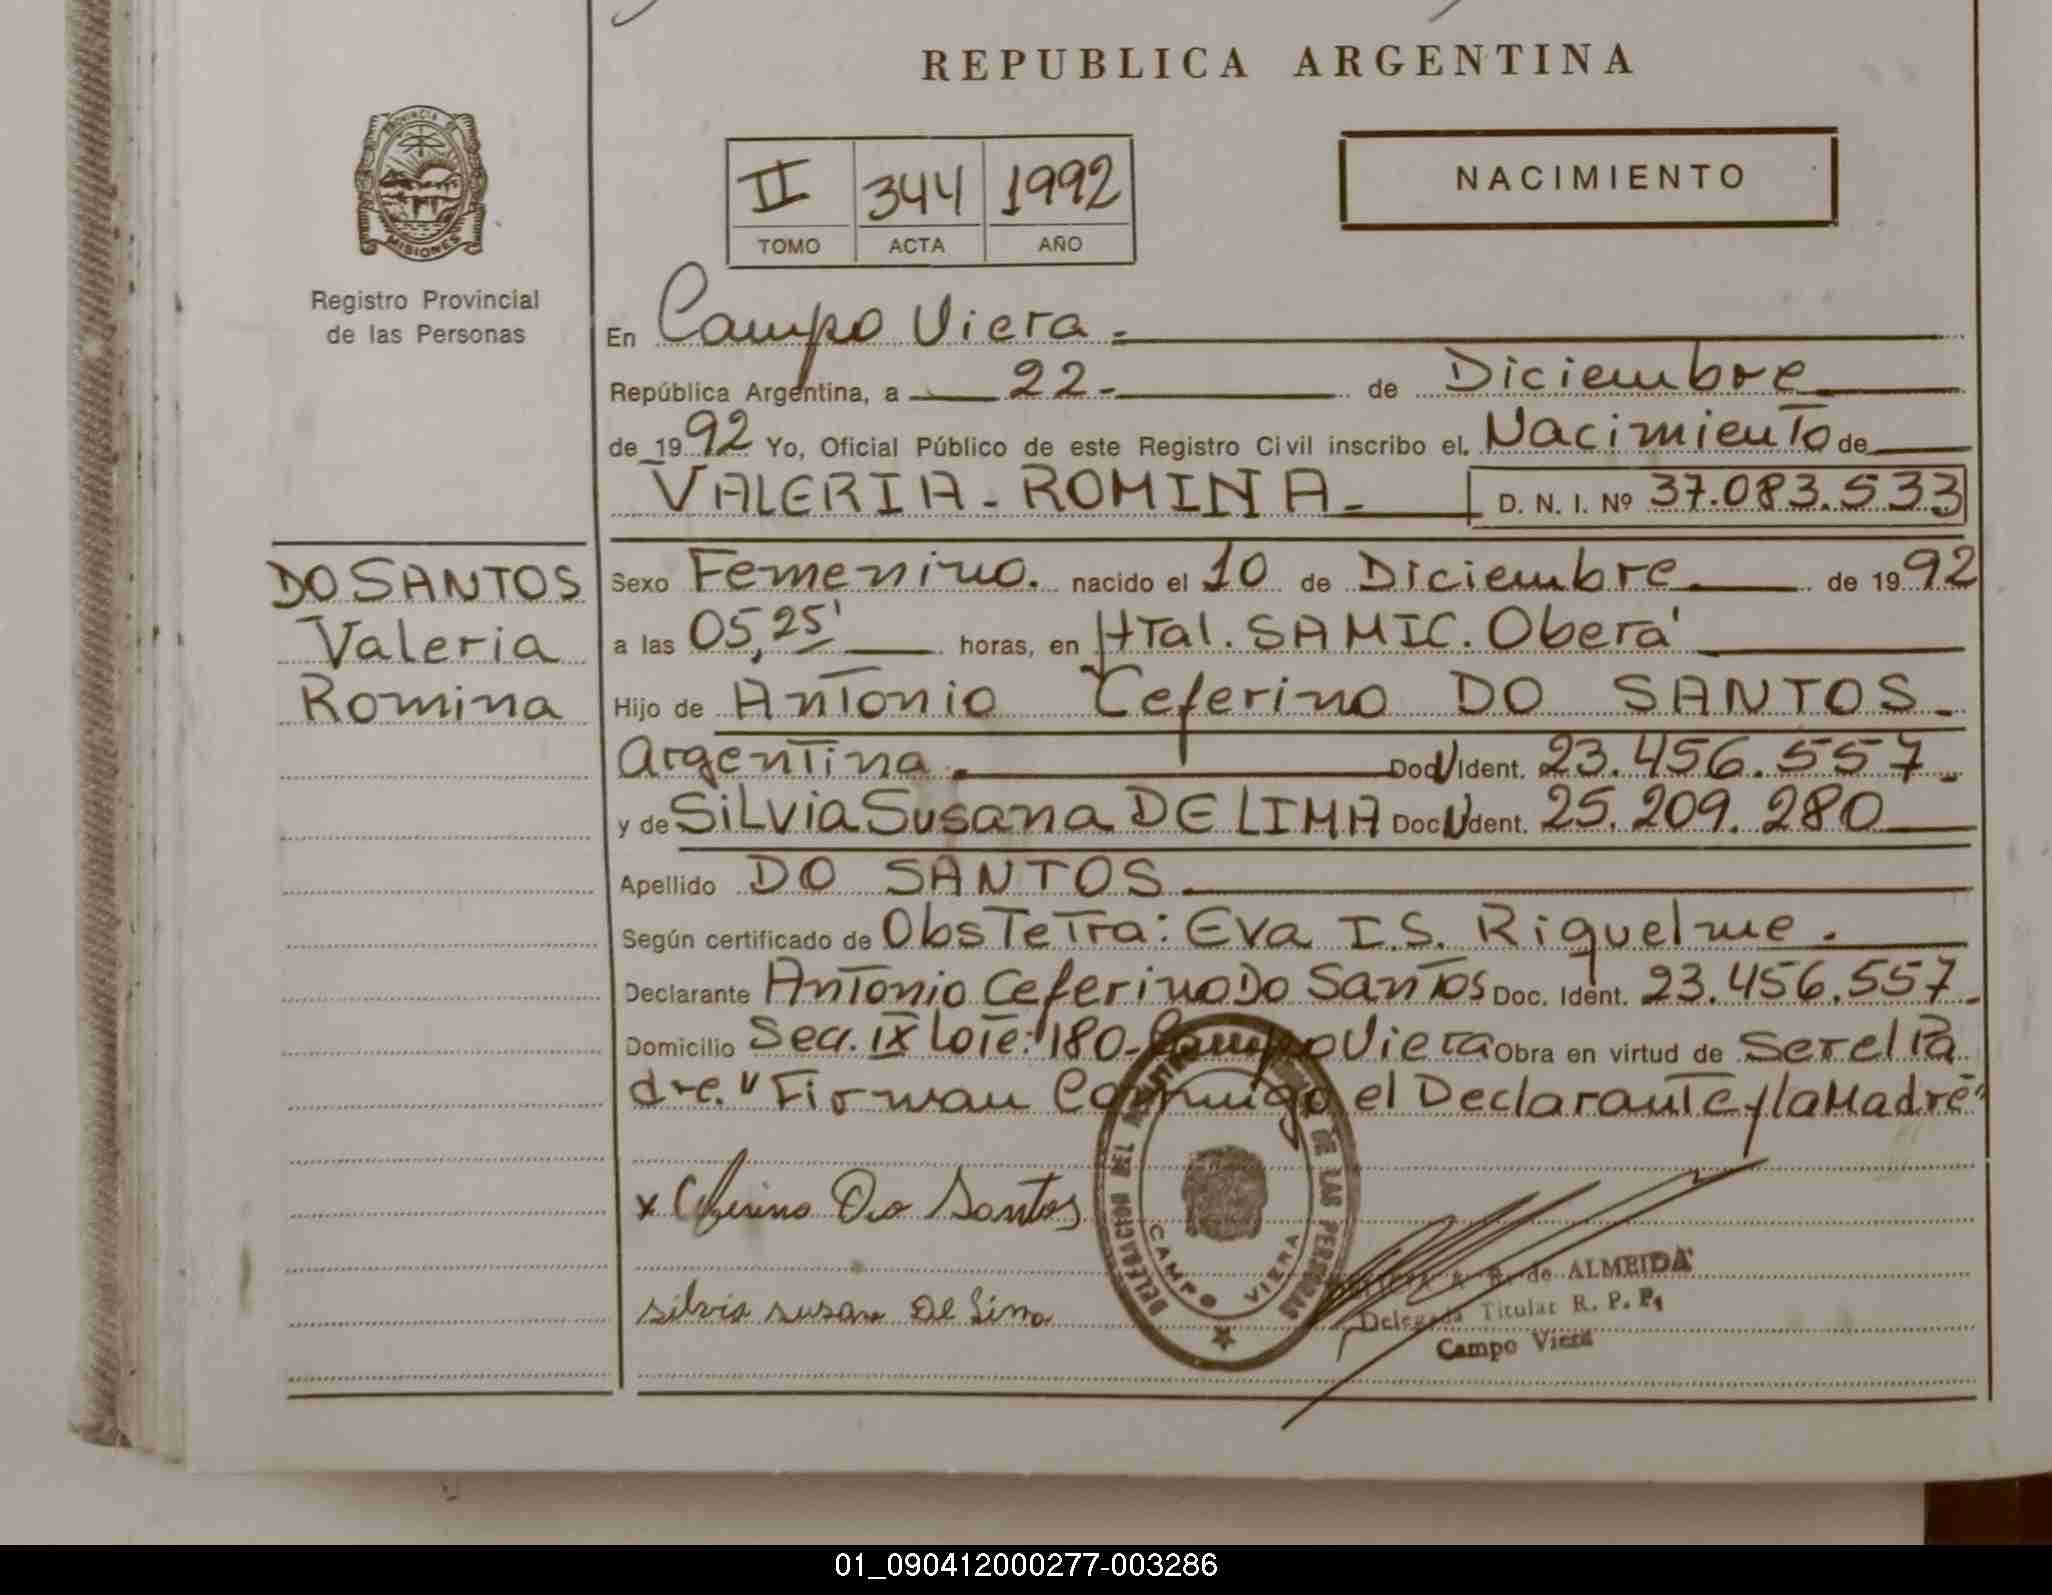 REPUBLICA ARGENTINA
PROVINCIA DE
MISIONES
Registro Provincial
de las Personas
II 344 1992
TOMO ACTA AÑO
NACIMIENTO
En Campo Viera.=
República Argentina, a 22- de Diciembre
de 1992 Yo, Oficial Público de este Registro Civil inscribo el. Nacimiento de
VALERIA - ROMINA - D. N. I. Nº 37.083.533
DO SANTOS
Valeria
Romina
Sexo Femenino. nacido el 10 de Diciembre. de 1992
a las 05,25' horas, en HTal. SAMIC. Oberá
Hijo de Antonio Ceferino DO SANTOS-
Argentina. Doc U Ident. 23.456.557-
y de Silvia Susana DE LIMA Doc U Ident. 25.209.280
Apellido DO SANTOS
Según certificado de Obstetra: Eva I.S. Riquelme.
Declarante Antonio Ceferino Do Santos Doc. Ident. 23.456.557-
Domicilio Secc. IX Lote: 180- Campo Viera Obra en virtud de Ser el Pa
dre. "Firman Conmigo el Declarante y la Madre"
x Ceferino Do Santos
silvia susana De Lima
DELEGACION DEL DE LAS PERSONAS
CAMPO VIERA
de ALMEIDA
Delegada Titular R. P. P.
Campo Viera
01_090412000277-003286